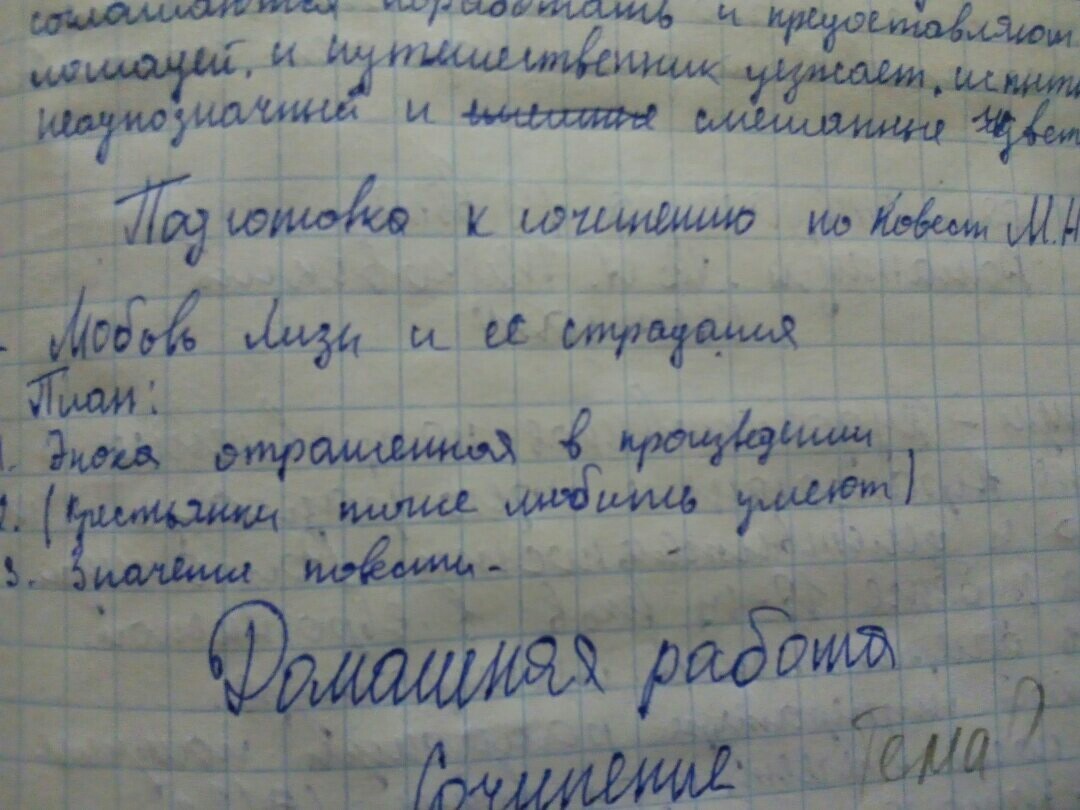 соглашаются поработать и предоставляют
лошадей, и путешественник уезжает, испыты
неоднозначный и смешанные чувст
Подготовка к сочинению по Повест М.Н
- Любовь Лизы и её страдания
План:
1. Эпоха отраженная в произведении
2. (Крестьянки тоже любить умеют)
3. Значение повести.
Домашняя работа
Сочинение. Тема?